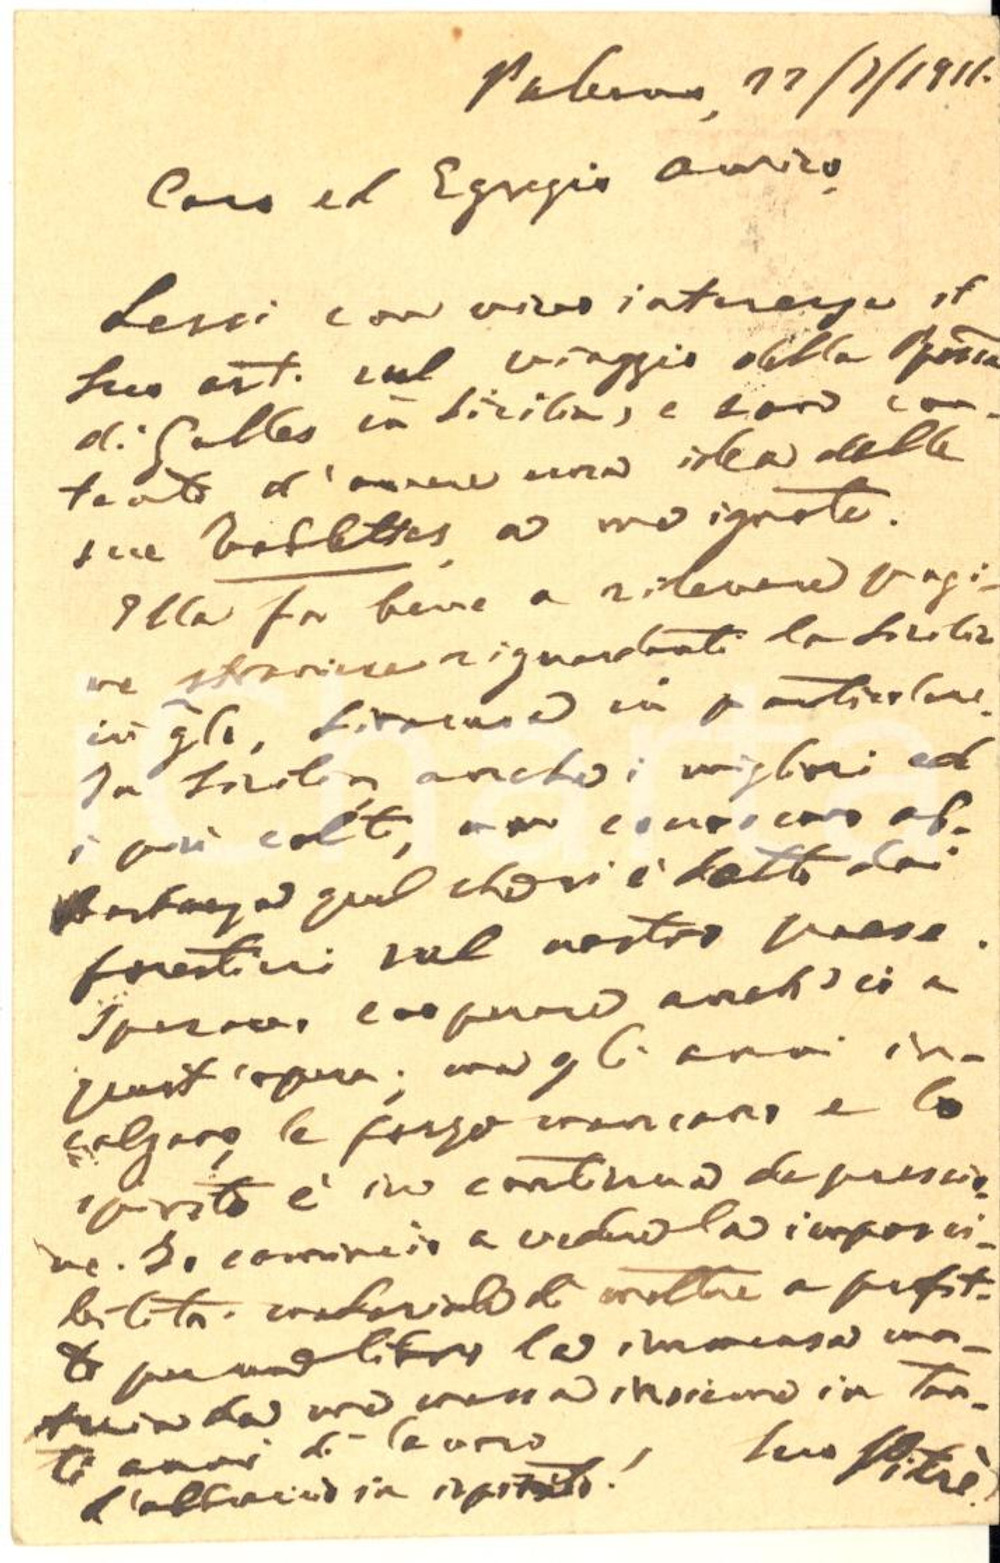 Palermo, 22/7/1911.
Caro ed Egregio Amico,
Lessi con vivo interesse il
Suo art. sul viaggio della
di Galles in Sicilia, e sono con-
tento d'avere una idea delle
sue a me ignote.
Ella fa bene a rilevare pagi-
ne straniere riguardanti la Sicilia
in g̃le, Siracusa in particolare.
In Sicilia, anche i migliori ed
i più colti, non conoscono ab-
bastanza quel che si è detto dai
forestieri sul nostro paese.
Speravo cooperare anch'io a
quest'opera; ma gli anni in-
calzano, le forze mancano e lo
spirito è in continua depressio-
ne. Io comincio a vedere la impossi-
bilità materiale di mettere a profit-
to per un libro la immensa ma-
teria da me messa insieme in tan-
ti anni di lavoro
L'abbraccio in ispirito! Suo Pitrè.
charta